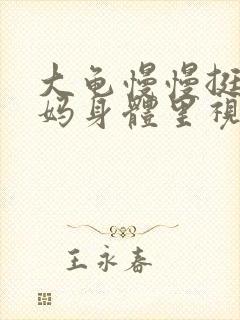 大龟慢慢挺
妈身體里視
王永春